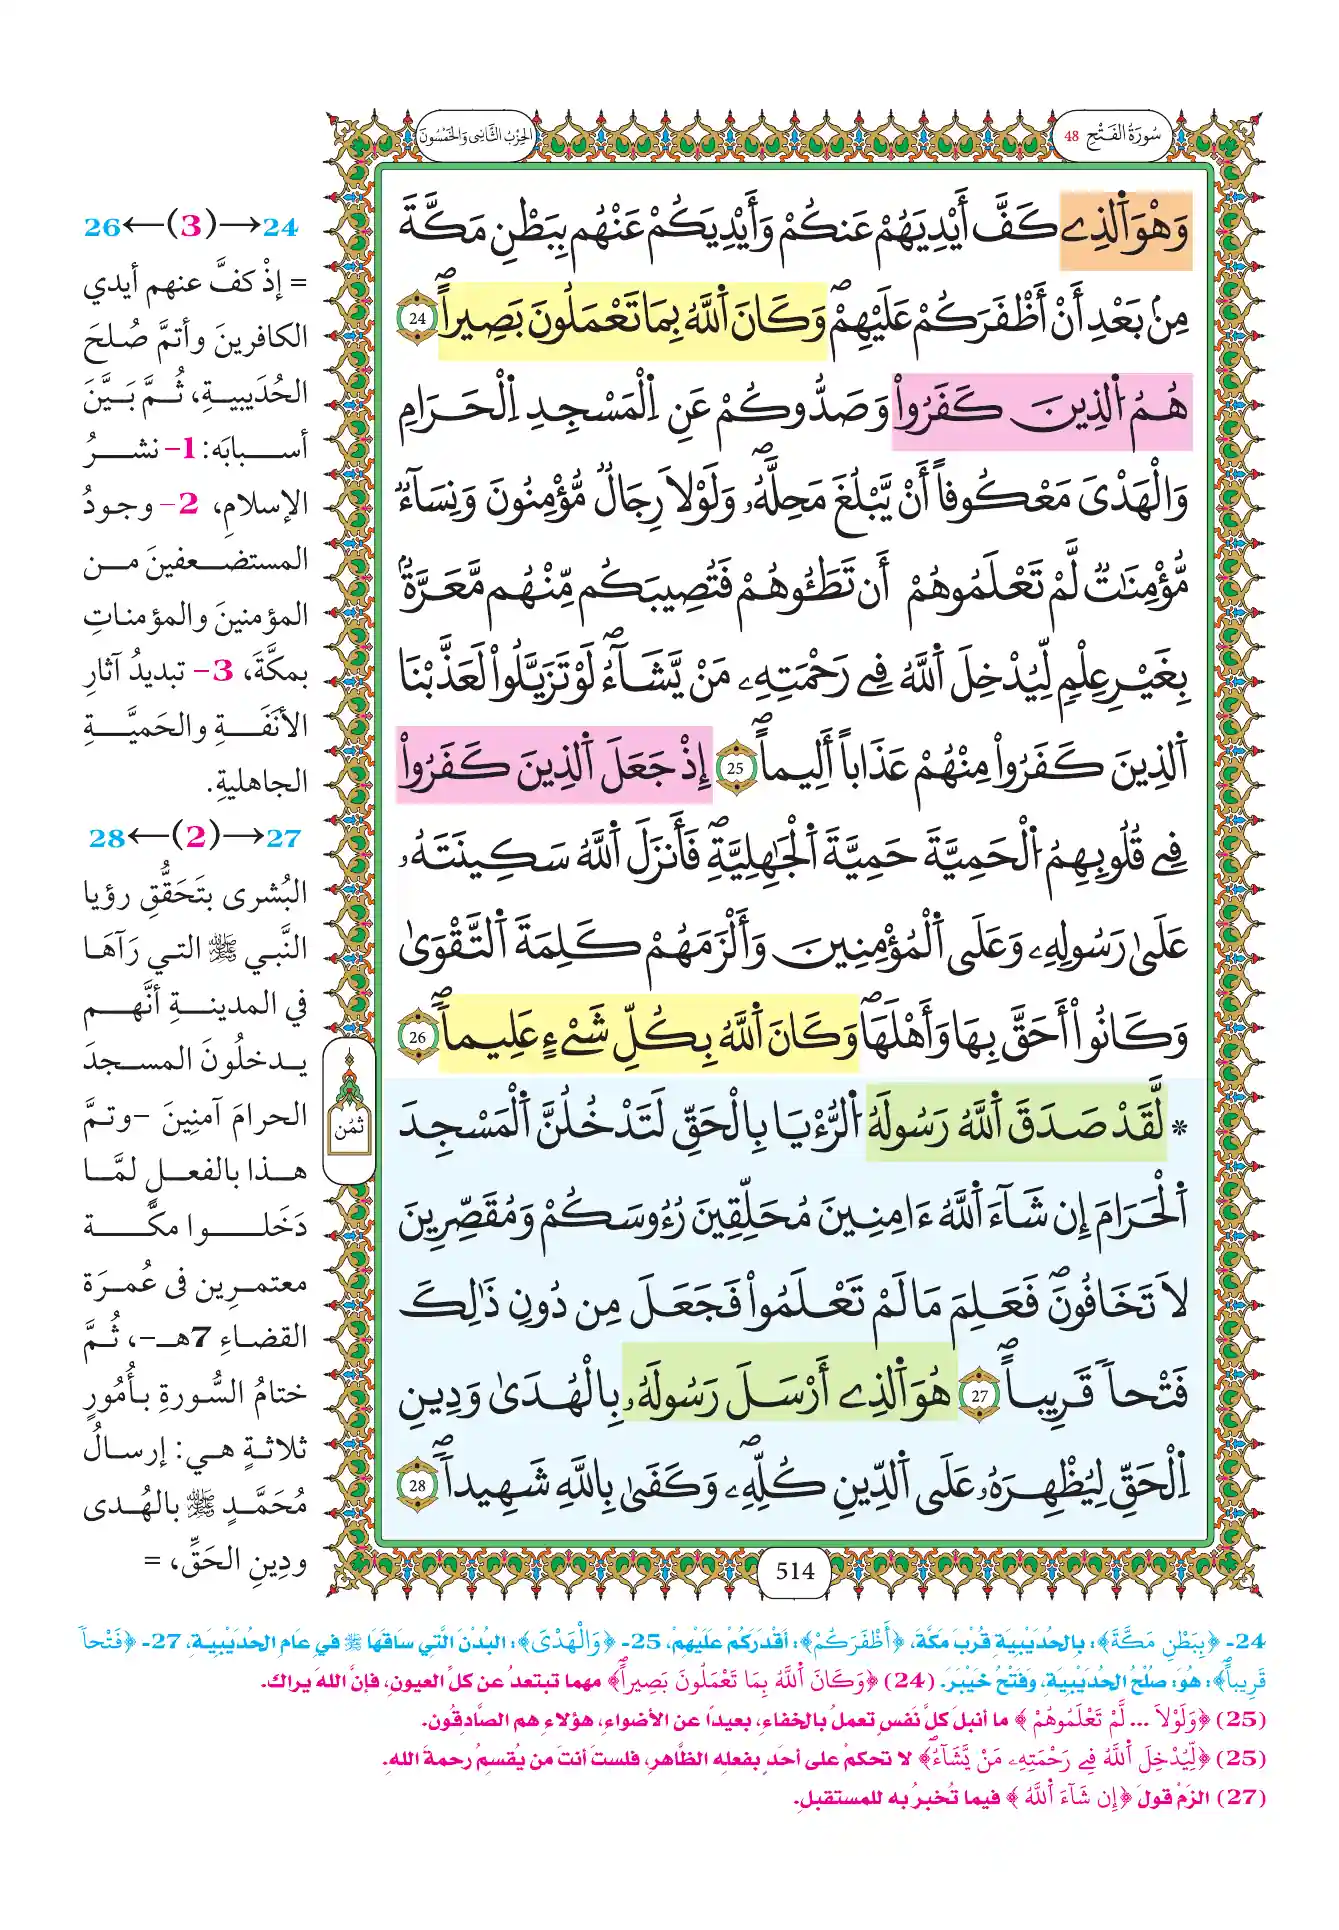 سُورَةُ الفَتْحِ 48
الحِزْبُ الثَّانِي وَالخَمْسُونَ
وَهْوَ اَ۬لذِے كَفَّ أَيْدِيَهُمْ عَنكُمْ وَأَيْدِيَكُمْ عَنْهُم بِبَطْنِ مَكَّةَ
مِنۢ بَعْدِ أَنْ أَظْفَرَكُمْ عَلَيْهِمْۖ وَكَانَ اَ۬للَّهُ بِمَا تَعْمَلُونَ بَصِيراًۖ 24
هُمُ اُ۬لذِينَ كَفَرُواْ وَصَدُّوكُمْ عَنِ اِ۬لْمَسْجِدِ اِ۬لْحَرَامِ
وَالْهَدْىَ مَعْكُوفاً أَنْ يَّبْلُغَ مَحِلَّهُۥۖ وَلَوْلَا رِجَالٞ مُّؤْمِنُونَ وَنِسَآءٞ
مُّؤْمِنَٰتٞ لَّمْ تَعْلَمُوهُمْ أَن تَطَـُٔوهُمْ فَتُصِيبَكُم مِّنْهُم مَّعَرَّةُۢ
بِغَيْرِ عِلْمٖ لِّيُدْخِلَ اَ۬للَّهُ فِے رَحْمَتِهِۦ مَنْ يَّشَآءُۖ لَوْ تَزَيَّلُواْ لَعَذَّبْنَا
اَ۬لذِينَ كَفَرُواْ مِنْهُمْ عَذَاباً أَلِيماًۖ 25 إِذْ جَعَلَ اَ۬لذِينَ كَفَرُواْ
فِے قُلُوبِهِمُ اُ۬لْحَمِيَّةَ حَمِيَّةَ اَ۬لْجَٰهِلِيَّةِۖ فَأَنزَلَ اَ۬للَّهُ سَكِينَتَهُۥ
عَلَىٰ رَسُولِهِۦ وَعَلَى اَ۬لْمُؤْمِنِينَ وَأَلْزَمَهُمْ كَلِمَةَ اَ۬لتَّقْوَىٰ
وَكَانُواْ أَحَقَّ بِهَا وَأَهْلَهَاۖ وَكَانَ اَ۬للَّهُ بِكُلِّ شَےْءٍ عَلِيماًۖ 26
* لَّقَدْ صَدَقَ اَ۬للَّهُ رَسُولَهُ اُ۬لرُّءْيَا بِالْحَقِّ لَتَدْخُلُنَّ اَ۬لْمَسْجِدَ
اَ۬لْحَرَامَ إِن شَآءَ اَ۬للَّهُ ءَامِنِينَ مُحَلِّقِينَ رُءُوسَكُمْ وَمُقَصِّرِينَ
لَا تَخَافُونَۖ فَعَلِمَ مَا لَمْ تَعْلَمُواْ فَجَعَلَ مِن دُونِ ذَٰلِكَ
فَتْحاً قَرِيباًۖ 27 هُوَ اَ۬لذِے أَرْسَلَ رَسُولَهُۥ بِالْهُدَىٰ وَدِينِ
اِ۬لْحَقِّ لِيُظْهِرَهُۥ عَلَى اَ۬لدِّينِ كُلِّهِۦۖ وَكَفَىٰ بِاللَّهِ شَهِيداًۖ 28
ثُمُن
514
24→(3)←26
= إذْ كفَّ عنهم أيدي
الكافرينَ وأتمَّ صُلحَ
الحُدَيبيةِ، ثُمَّ بَيَّنَ
أسبابَه: 1- نشرُ
الإسلامِ، 2- وجودُ
المستضعفينَ من
المؤمنينَ والمؤمناتِ
بمكَّةَ، 3- تبديدُ آثارِ
الأنَفَةِ والحَميَّةِ
الجاهليةِ.
27→(2)←28
البُشرى بتَحَقُّقِ رؤيا
النَّبي ﷺ التي رَآهَا
في المدينةِ أنَّهم
يدخلُونَ المسجدَ
الحرامَ آمنِينَ -وتمَّ
هذا بالفعلِ لمَّا
دَخَلوا مكَّة
معتمرِين فى عُمرَة
القضاءِ 7هـ-، ثُمَّ
ختامُ السُّورةِ بأمُورٍ
ثلاثةٍ هي: إرسالُ
مُحَمَّدٍ ﷺ بالهُدى
ودِينِ الحَقِّ، =
24- ﴿بِبَطْنِ مَكَّةَ﴾: بِالحُدَيْبِيَةِ قُرْبَ مَكَّةَ، ﴿أَظْفَرَكُمْ﴾: أَقْدَرَكُمْ عَلَيْهِمْ، 25- ﴿وَالْهَدْىَ﴾: البُدْنَ الَّتِي سَاقَهَا ﷺ في عَامِ الحُدَيْبِيَةِ، 27- ﴿فَتْحاً
قَرِيباًۖ﴾: هُوَ: صُلْحُ الحُدَيْبِيَةِ، وَفَتْحُ خَيْبَرَ. (24) ﴿وَكَانَ اَ۬للَّهُ بِمَا تَعْمَلُونَ بَصِيراًۖ﴾ مهما تبتعدُ عن كلِّ العيونِ، فإنَّ اللهَ يراك.
(25) ﴿وَلَوْلَا ... لَّمْ تَعْلَمُوهُمْ﴾ ما أنبلَ كلَّ نَفسٍ تعملُ بالخفاءِ، بعيدًا عن الأضواءِ، هؤلاءِ هم الصَّادِقُون.
(25) ﴿لِّيُدْخِلَ اَ۬للَّهُ فِے رَحْمَتِهِۦ مَنْ يَّشَآءُۖ﴾ لا تحكمْ على أحدٍ بفعلِه الظَّاهرِ، فلستَ أنتَ من يُقسِمُ رحمةَ اللهِ.
(27) الزَمْ قولَ ﴿إِن شَآءَ اَ۬للَّهُ﴾ فيما تُخبرُ به للمستقبلِ.